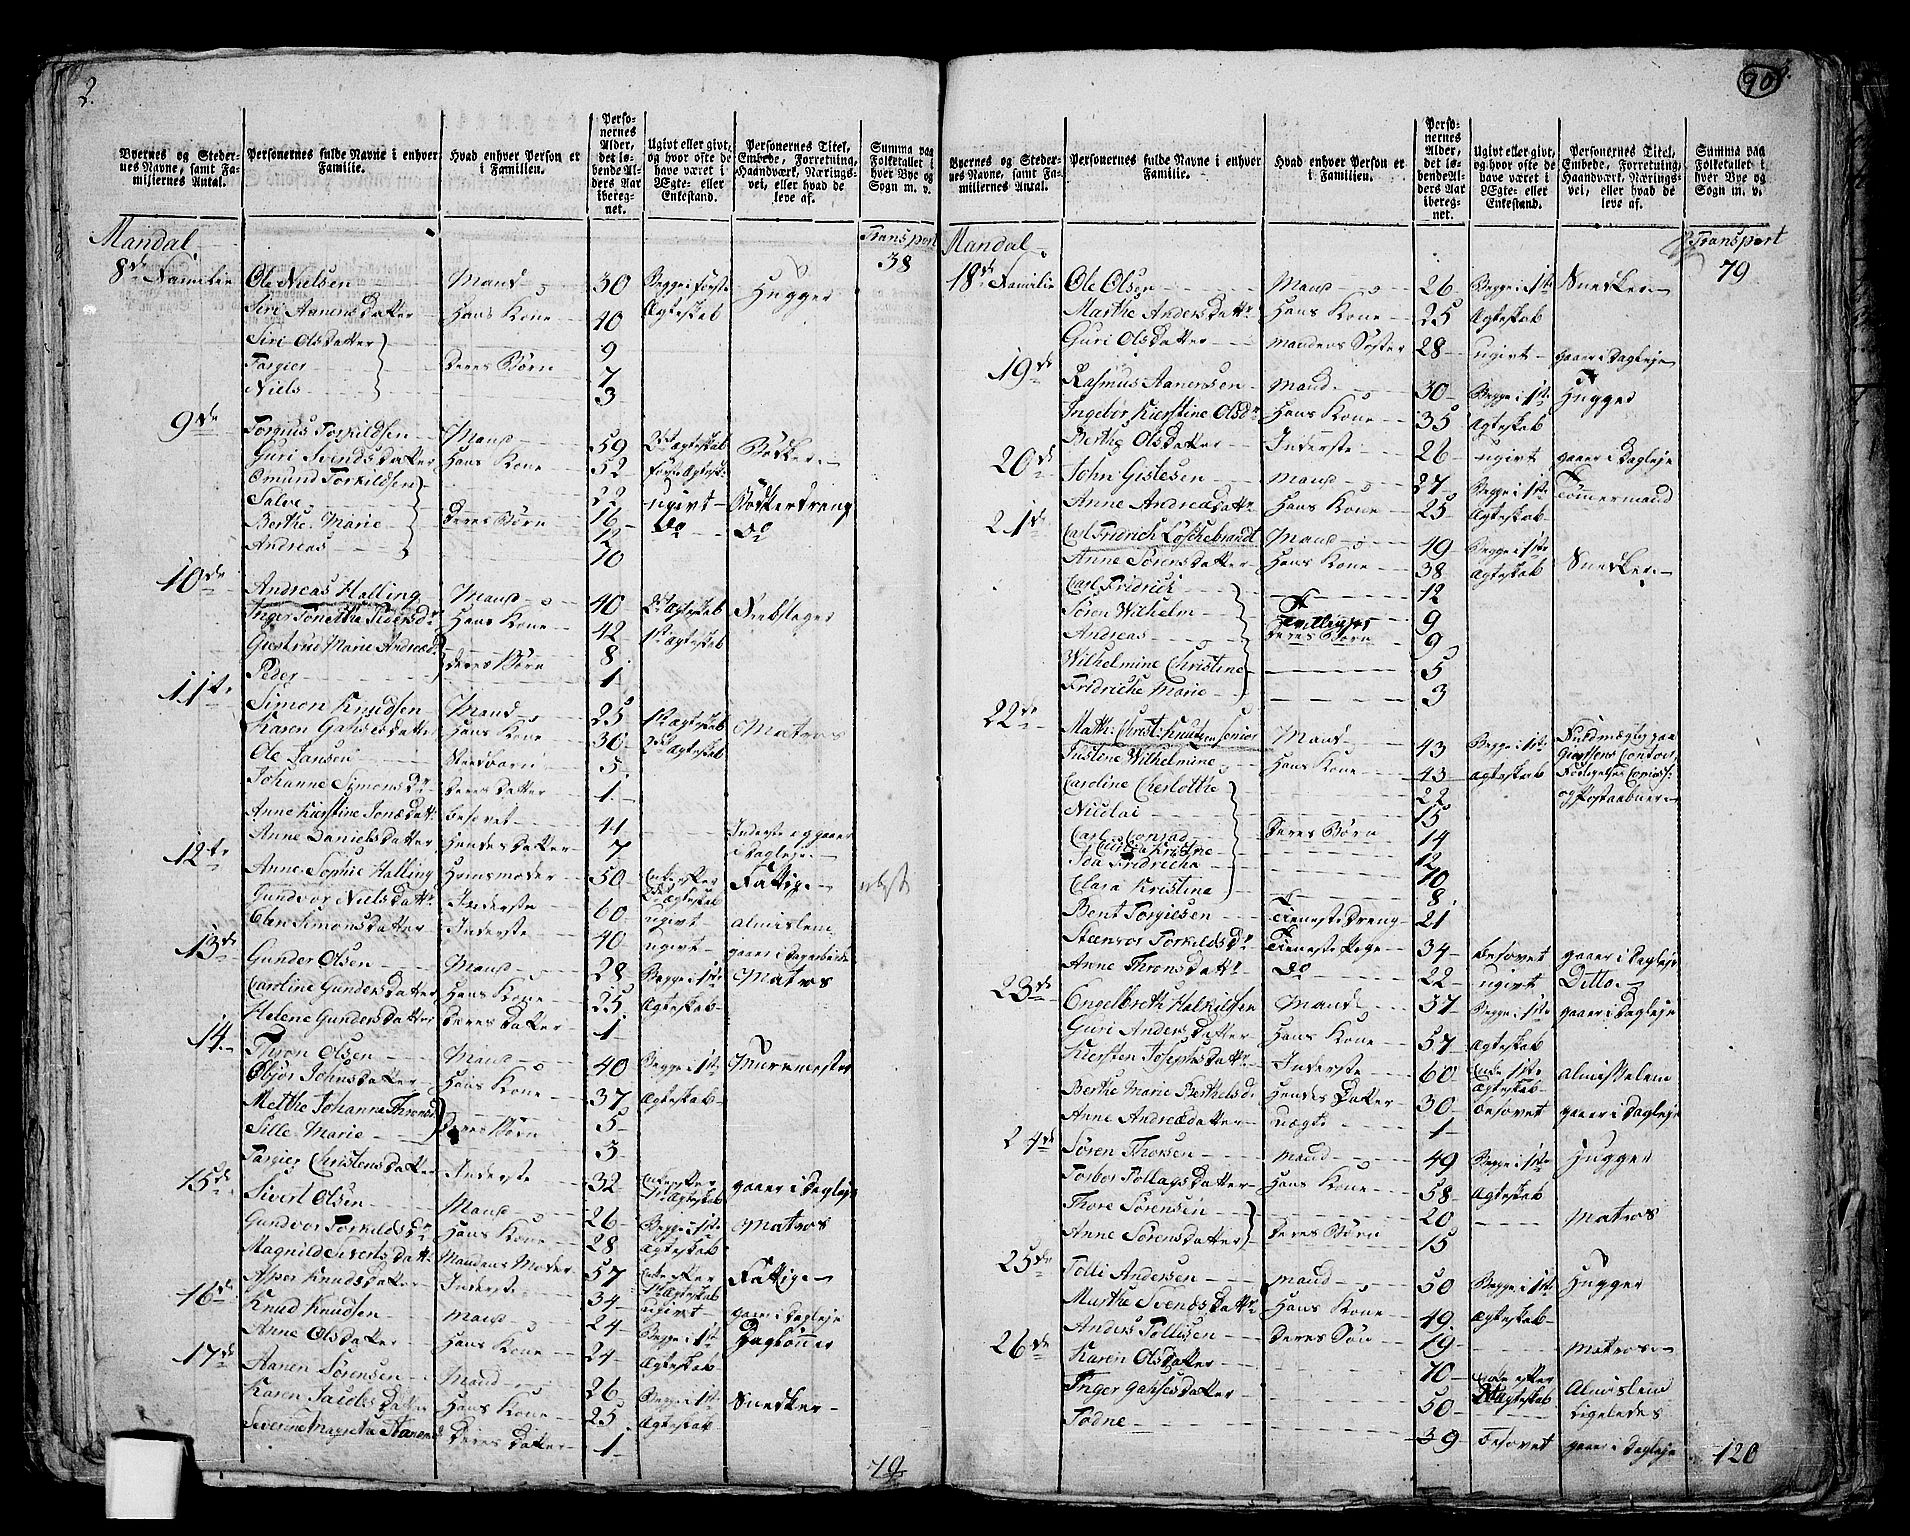 2.
Byernes og Stedernes Navne, samt Familiernes Antal.
Personernes fulde Navne i enhver Familie.
Hvad enhver Person er i Familien.
Personernes Alder, det løbende Alders Aar iberegnet.
Ugivt eller givt, og hvor ofte de have været i Ægte- eller Enkestand.
Personernes Titel, Embede, Forretning, Haandværk, Næringsvei, eller hvad de leve af.
Summa paa Folketallet i hver Bye og Sogn m. v.
Mandal Transport
8de Familie Ole Nielsen Mand 30 Begge i første Hugger 38
Siri Aanensdatter Hans Kone 40 Ægteskab
Siri Olsdatter 9
Targier Deres Børn 7
Niels 3
9de Torgius Torkildsen Mand 59 Ægteskab Bødker
Guri Svendsdatter Hans Kone 52 første Ægtesk.
Omund Torkildsen 22 ugivt Bødkerdreng
Salve Deres Børn 16 Do Do
Berthe Marie 12
Andreas 10
10de Andreas Halling Mand 40 2det Ægteskab
Inger Tonette Hans Kone 42 1st Ægteskab
Giertrue Marie Andread. Deres Børn 8
Peder 1
11te Simon Knudsen Mand 25 1st Ægteskab Matros
Karen Hans Kone 36 2det Ægteskab
Ole Jansen Steedbarn 5
Johanne Simonsdr Deres Datter 1
Anne Kirstine besovet 41 Inderste og gaaer
Anne Danielsdatter Hendes Datter 7 i Dagleje
12te Anne Sophie Halling Huusmoder 50 Enke efter Fattige
Ægteskab
Gundvor Nielsdatr Inderste 60 ugivt Almislem
Elen Simonsdatter Inderste 40 ugivt gaaer i Dagarbeide
13de Gunder Olsen Mand 28 Begge i 1ste Matros
Caroline Gundersdatter Hans Kone 25 Ægteskab
Helene Gundersdatter Deres Datter 1
14 Thron Olsen Mand 40 Begge i 1ste Muremester
Johnsdatter Hans Kone 37 Ægteskab
Metthe Johanne Thronsd Deres Børn 5
Sille Marie 3
Targier Christensdatter Inderste 32 Enke efter gaaer i Dagleje
Ægteskab
15de Sivert Olsen Mand 26 Begge i 1ste Matros
Gundvor Torkildsdr Hans Kone 28 Ægteskab
Magnild Mandens Moder 57 Enke efter Fattige
Ægteskab
Knudsdatter Inderste 34 ugivt gaaer i Dagleje
16de Knud Knudsen Mand 24 Begge i 1st Daglønner
Anne Olsdatter Hans Kone 24 Ægteskab
17de Aanen Sørensen Mand 26 Begge i 1st Snedker
Karen Jacobsdatter Hans Kone 25 Ægteskab
Severine Magrethe Aanensd Deres Datter 1
79
90
Byernes og Stedernes Navne, samt Familiernes Antal.
Personernes fulde Navne i enhver Familie.
Hvad enhver Person er i Familien.
Personernes Alder, det løbende Alders Aar iberegnet.
Ugivt eller givt, og hvor ofte de have været i Ægte- eller Enkestand.
Personernes Titel, Embede, Forretning, Haandværk, Næringsvei, eller hvad de leve af.
Summa paa Folketallet i hver Bye og Sogn m. v.
Mandal Transport
18de Familie Ole Olsen Mand 26 Begge i 1ste Snedker 79
Marthe Andersdatr Hans Kone 25 Ægteskab
Guri Olsdatter Mandens Søster 28 ugivt gaaer i Dagleje
19de Rasmus Aanensen Mand 30 Begge i 1ste Hugger
Ingebor Kierstine Olsdr Hans Kone 35 Ægteskab
Berthe Olsdatter Inderste 26 ugivt gaaer i Dagleje
20de John Gislesen Mand 27 Begge i 1ste Tømmermand
Anne Andreædatr Hans Kone 25 Ægteskab
21de Carl Fridrich Löschebrandt Mand 49 Begge i 1ste Snedker
Anne Sørensdatter Hans Kone 38 Ægteskab
Carl Fridrich 12
Søren Wilhelm Tvillinger 9
Andreas Deres Børn 9
Wilhelmine Christine 5
Fridriche Marie 3
22de Math: Christ: Knutzen Senior Mand 43 Begge i 1ste Fuldmægtig paa
Justine Wilhelmine Hans Kone 43 Ægteskab
Caroline Charlotthe 22 og Postaabner
Nicolai 15
Carl Conrad Deres Børn 14
Kristine 12
Ida Fridricha 10
Clara Kristine 8
Bent Torgiesen Tieneste Dreng 21
Steenvor Torkildsdr Tieneste Pige 34 besovet gaaer i Dagleje
Anne Thronsdatr Do 22 ugivt Ditto
23de Engelbreth Halkildsen Mand 37 Begge i 1ste gaaer i Dagleje
Guri Andersdatter Hans Kone 57 Ægteskab
Kiersten Josephsdatr Inderste 60 Enke 1ste Almisselem
Ægteskab
Berthe Marie Berthelsd. Hendes Datter 30 besovet gaaer i Dagleje
Anne Andreædatter uægte 1
24de Søren Thorsen Mand 49 Begge i 1ste Hugger
Torbor Tollagsdatter Hans Kone 58 Ægteskab
Thore Sørensen 20 Matros
Anne Sørensdatter Deres Børn 15
25de Tolli Andersen Mand 50 Begge i 1st Hugger
Marthe Svendsdatr Hans Kone 49 Ægteskab
Anders Tollisen Deres Søn 19 Matros
26de Karen Olsdatter 70 Enke efter Almislem
Inger datter 50 Ægteskab Ligeledes
Todne 39 besovet gaaer i Dagleje 120